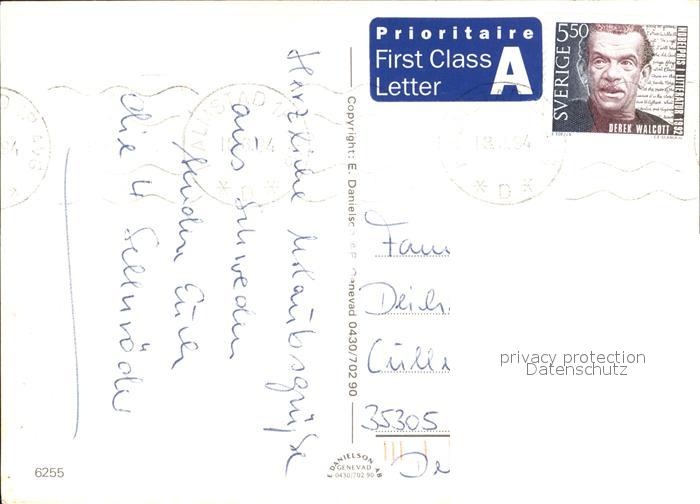 Prioritaire
First Class
Letter
A
SVERIGE 5.50
NOBELPRIS I LITTERATUR 1992
DEREK WALCOTT
Herzliche Urlaubsgrüße
aus Schweden
senden Euch
die 4
Copyright: E. Danielson AB Genevad 0430/702 90
Fam
Deich
Cülle
35305
De
privacy protection
Datenschutz
E DANIELSON AB
GENEVAD
0430/702 90
6255